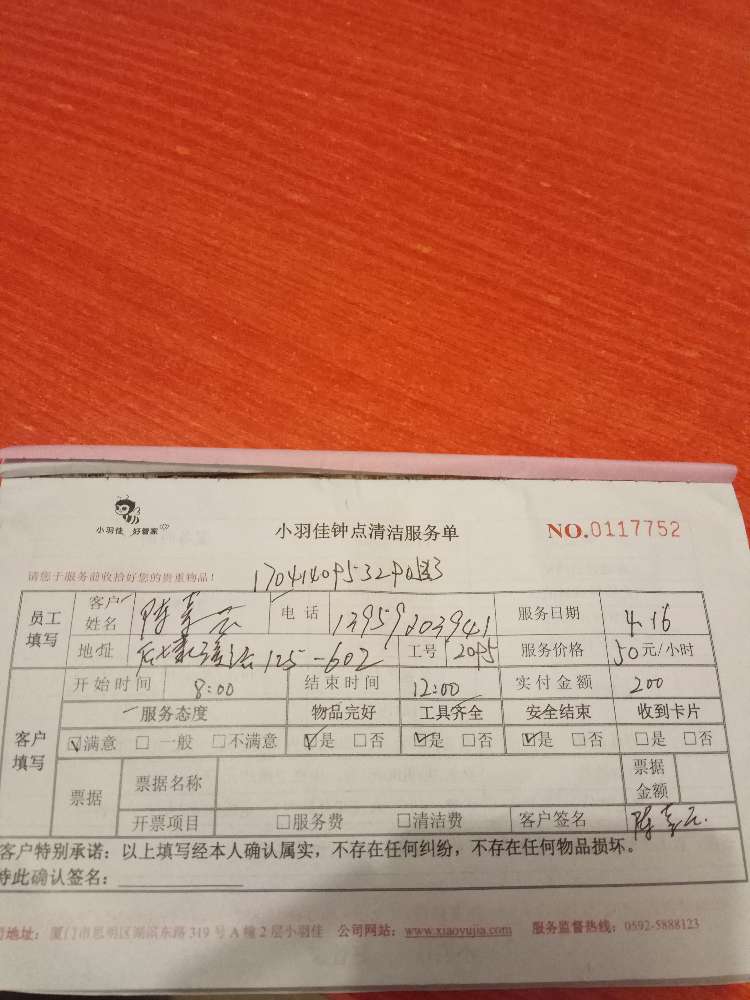 小羽佳 好管家
小羽佳钟点清洁服务单
NO.0117752
请您于服务前收拾好您的贵重物品!
员工填写 客户姓名 陈 电话 13959203941 服务日期 4.16
地址 125-602 工号 2095 服务价格 50元/小时
客户填写 开始时间 8:00 结束时间 12:00 实付金额 200
服务态度 物品完好 工具齐全 安全结束 收到卡片
☑满意 □一般 □不满意 ☑是 □否 ☑是 □否 ☑是 □否 □是 □否
票据 票据名称 票据金额
开票项目 □服务费 □清洁费 客户签名 陈
客户特别承诺:以上填写经本人确认属实,不存在任何纠纷,不存在任何物品损坏。
特此确认签名:
司地址:厦门市思明区湖滨东路319号A幢2层小羽佳 公司网站:www.xiaoyujia.com 服务监督热线:0592-5888123